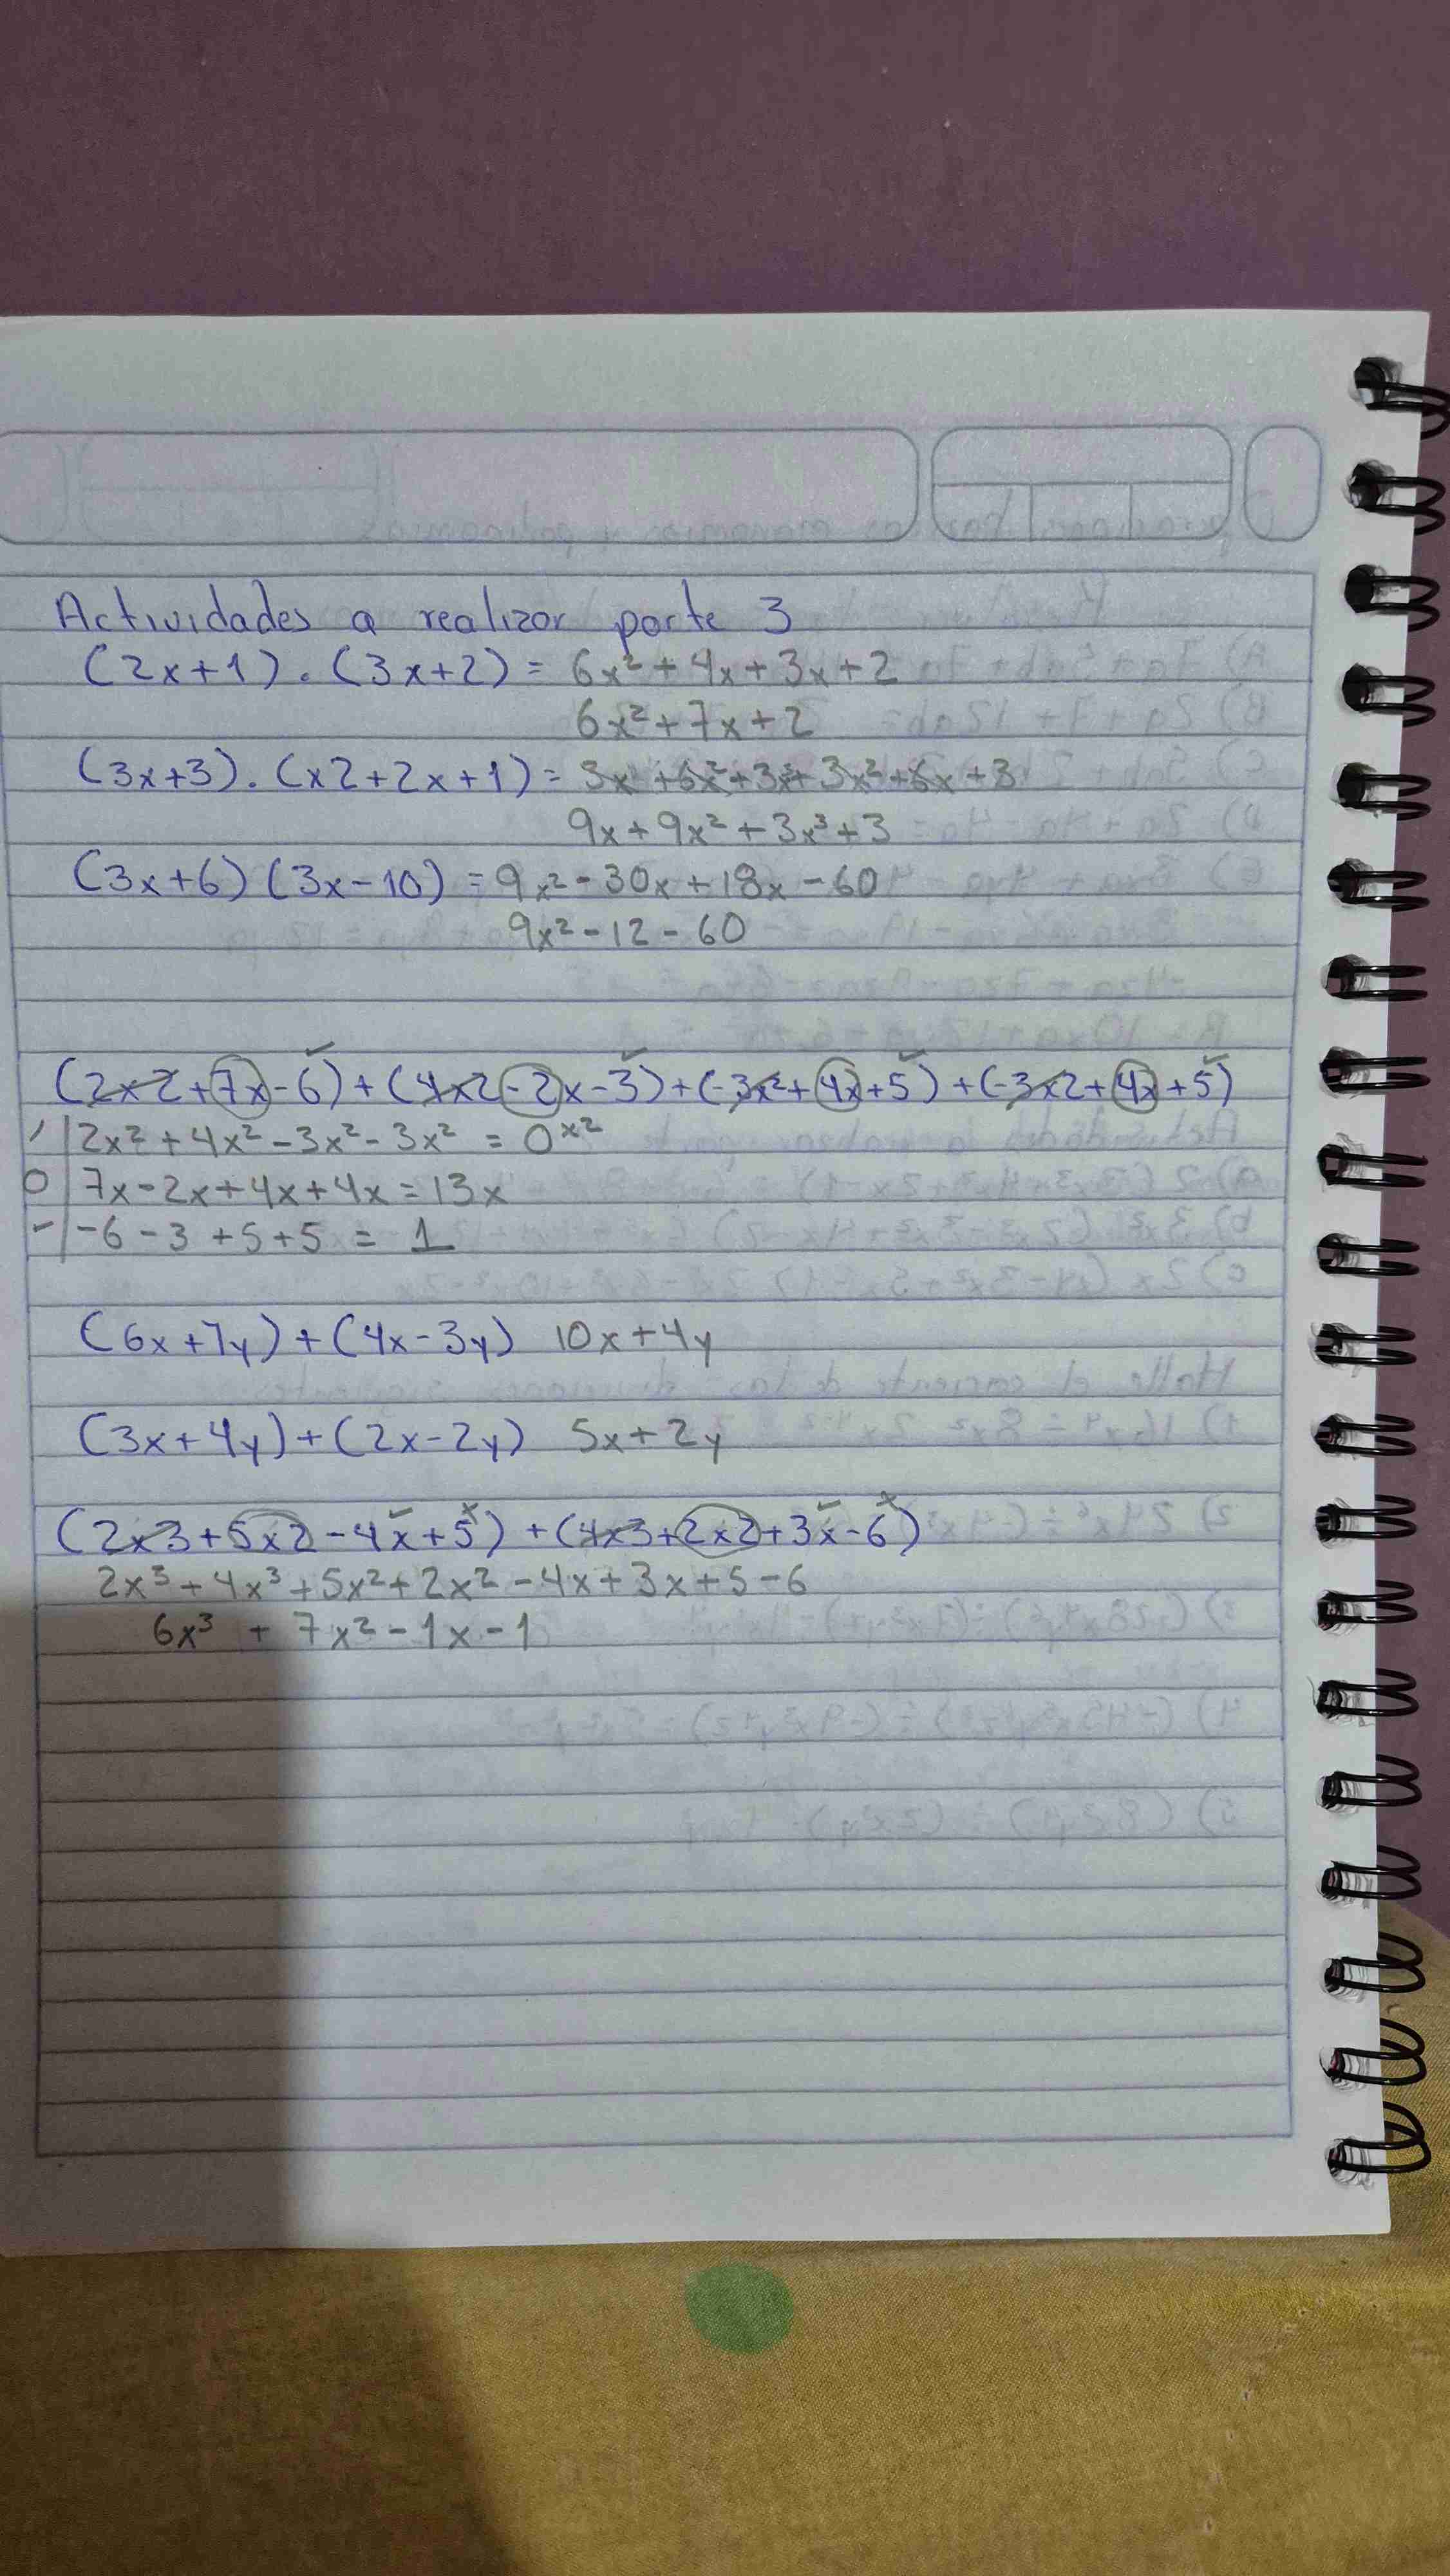 Actividades a realizar parte 3
(2x+1).(3x+2)= 6x²+4x+3x+2
6x²+7x+2
(3x+3).(x2+2x+1)= 3x +6x²+3x³+3x²+6x+3
9x+9x²+3x³+3
(3x+6)(3x-10)=9x²-30x+18x-60
9x²-12-60
(2x2+7x-6)+(4x2-2x-3)+(-3x²+4x+5)+(-3x2+4x+5)
/ 2x²+4x²-3x²-3x² = 0x²
O 7x-2x+4x+4x=13x
- -6-3+5+5 = 1
(6x+7y)+(4x-3y) 10x+4y
(3x+4y)+(2x-2y) 5x+2y
(2x3+5x2-4x+5)+(4x3+2x2+3x-6)
2x³+4x³+5x²+2x²-4x+3x+5-6
6x³ + 7x²-1x-1